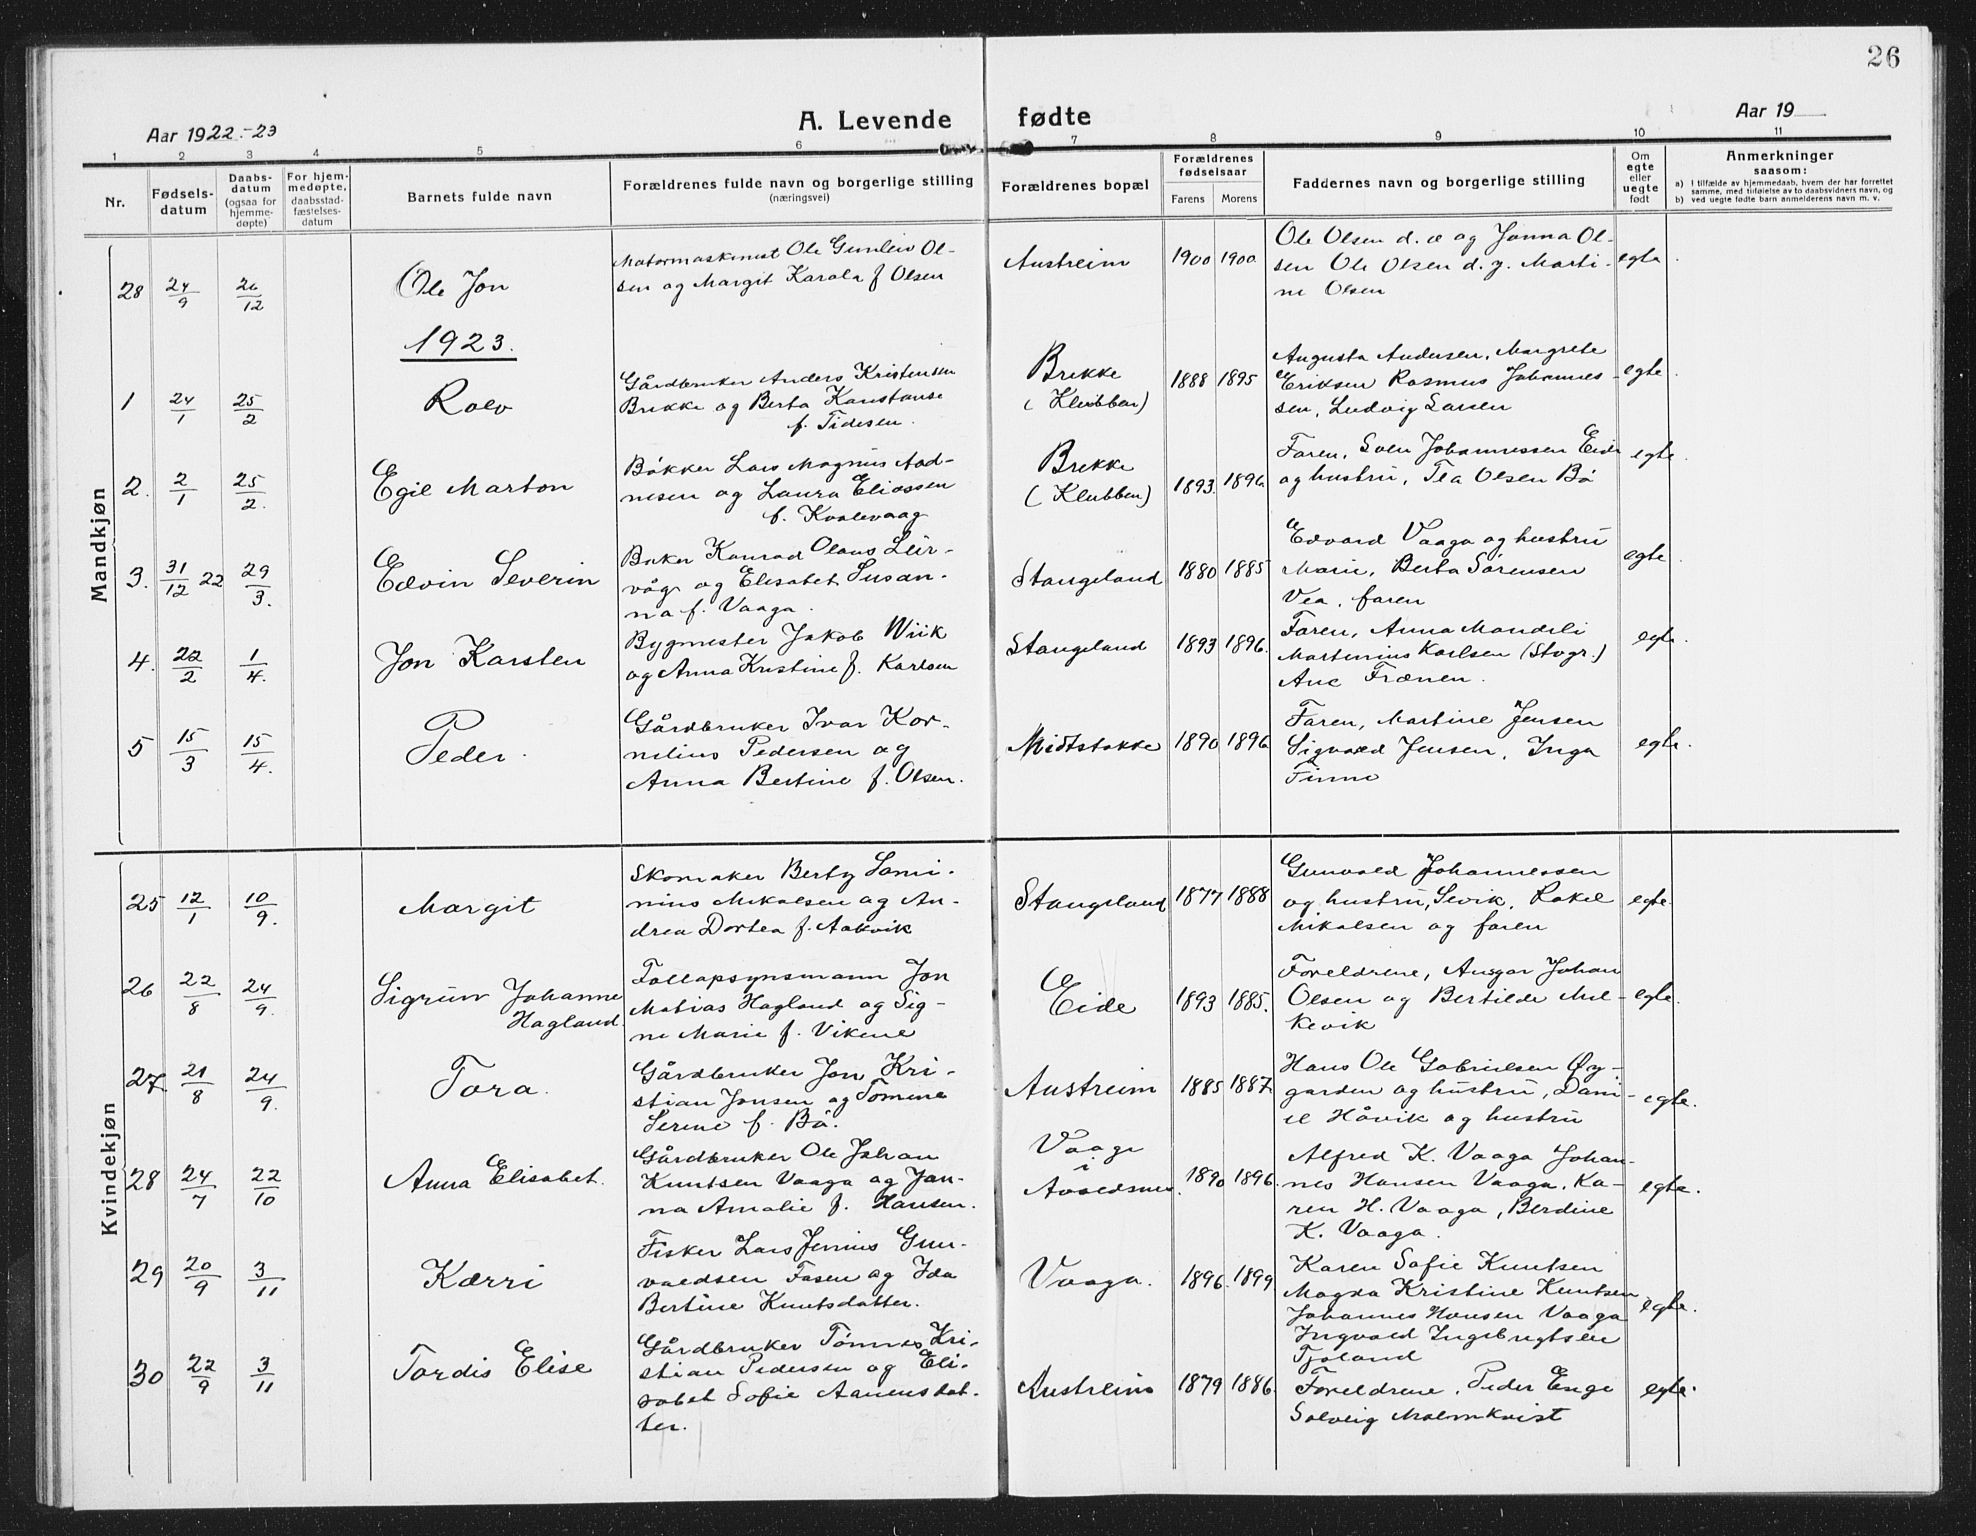 26
Aar 1922-23
A. Levende fødte
Aar 19
1 2 3 4 5 6 7 8 9 10 11
Nr.
Fødsels-
datum
Daabs-
datum
(ogsaa for
hjemme-
døpte)
For hjem-
medøpte,
daabsstad-
fæstelses-
datum
Barnets fulde navn
Forældrenes fulde navn og borgerlige stilling
(næringsvei)
Forældrenes bopæl
Forældrenes
fødselsaar
Farens Morens
Faddernes navn og borgerlige stilling
Om
egte
eller
uegte
født
Anmerkninger
saasom:
a) I tilfælde av hjemmedaab, hvem der har forrettet
samme, med tilføielse av to daabsvidners navn, og
b) ved uegte fødte barn anmelderens navn m. v.
Mandkjøn
28 24/9 26/12 Ole Jon
Motormaskinist Ole Gunleiv Ol-
sen og Margit Karola f Olsen
Austreim 1900 1900
Ole Olsen d. e og Jonna Ol-
sen Ole Olsen d. y. Marti-
ne Olsen
egte
1923.
1 24/1 25/2 Rolv
Gårdbruker Anders Kristensen
Brekke og Berta Konstanse
f. Tidesen.
Brekke
(Klubben)
1888 1895
Augusta Andersen, Margrete
Eriksen Rasmus Johannes-
sen, Ludvig Larsen
egte.
2. 2/1 25/2. Egil Marton
Båkker Lars Magnus Aad-
nesen og Laura Eliassen
f. Kvalevaag
Brekke
(Klubben)
1893. 1896.
Faren, Sven Johannessen Eide
og hustru, Tea Olsen Bø
egte.
3. 31/12 22 29/3. Edvin Severin
Baker Konrad Olaus Leir-
våg og Elisabet Susan-
na f. Vaaga.
Stangeland 1880 1885
Edvard Vaaga og hustru
Marie, Berta Sørensen
Vea, faren
egte.
4. 22/2 1/4. Jon Karsten
Bygmester Jakob Wiik
og Anna Kristine f. Karlsen
Stangeland 1893 1896.
Faren, Anna Mandeli
Martinius Karlsen (Stvgr.)
Ane Frænen.
egte.
5 15/3 15/4. Peder.
Gårdbruker Ivar Kor-
nelius Pedersen og
Anna Bertine f. Olsen.
Midtstokke 1890 1896
Faren, Martine Jensen
Sigvald Jensen, Inga
Finne
egte.
Kvindekjøn
25 12/1 10/9. Margit
Skomaker Berty Sami-
nius Mikalsen og An-
drea Dortea f. Aakvik
Stangeland 1877 1888
Gunvald Johannessen
og hustru, Sevik, Rakel
Mikalsen og faren
egte.
26 22/8 24/9. Sigrun Johanne
Hagland.
Tollopsynsmann Jon
Matias Hagland og Sig-
ne Marie f. Vikene
Eide 1893 1885.
Foreldrene, Ansgar Johan
Olsen og Bertilde Mel-
kevik
egte.
27. 21/8 24/9. Tora.
Gårdbruker Jon Kri-
stian Jonsen og Tomine
Serine f. Bø.
Austreim 1885 1887.
Hans Ole Gabrielsen Øy-
garden og hustru, Dani-
el Håvik og hustru
egte.
28 24/7 22/10 Anna Elisabet.
Gårdbruker Ole Johan
Knutsen Vaaga og Jan-
na Amalie f. Hansen.
Vaage
i
Avaldsnes.
1890 1896.
Alfred K. Vaaga Johan-
nes Hansen Vaaga, Ka-
ren H. Vaaga, Berdine
K. Vaaga.
egte.
29 20/9 3/11 Kærri
Fisker Lars Jenius Gun-
valdsen Fosen og Ida
Bertine Knutsdatter.
Vaaga. 1896. 1899
Karen Sofie Knutsen
Magda Kristine Knutsen
Johannes Hansen Vaaga
Ingvald Ingebrigtsen
Tjoland
egte.
30 22/9 3/11 Tordis Elise
Gårdbruker Tønnes Kri-
stian Pedersen og Eli-
sabet Sofie Aanensdat-
ter.
Austreim 1879 1886.
Foreldrene, Peder Enge
Solveig Malmkvist
egte.